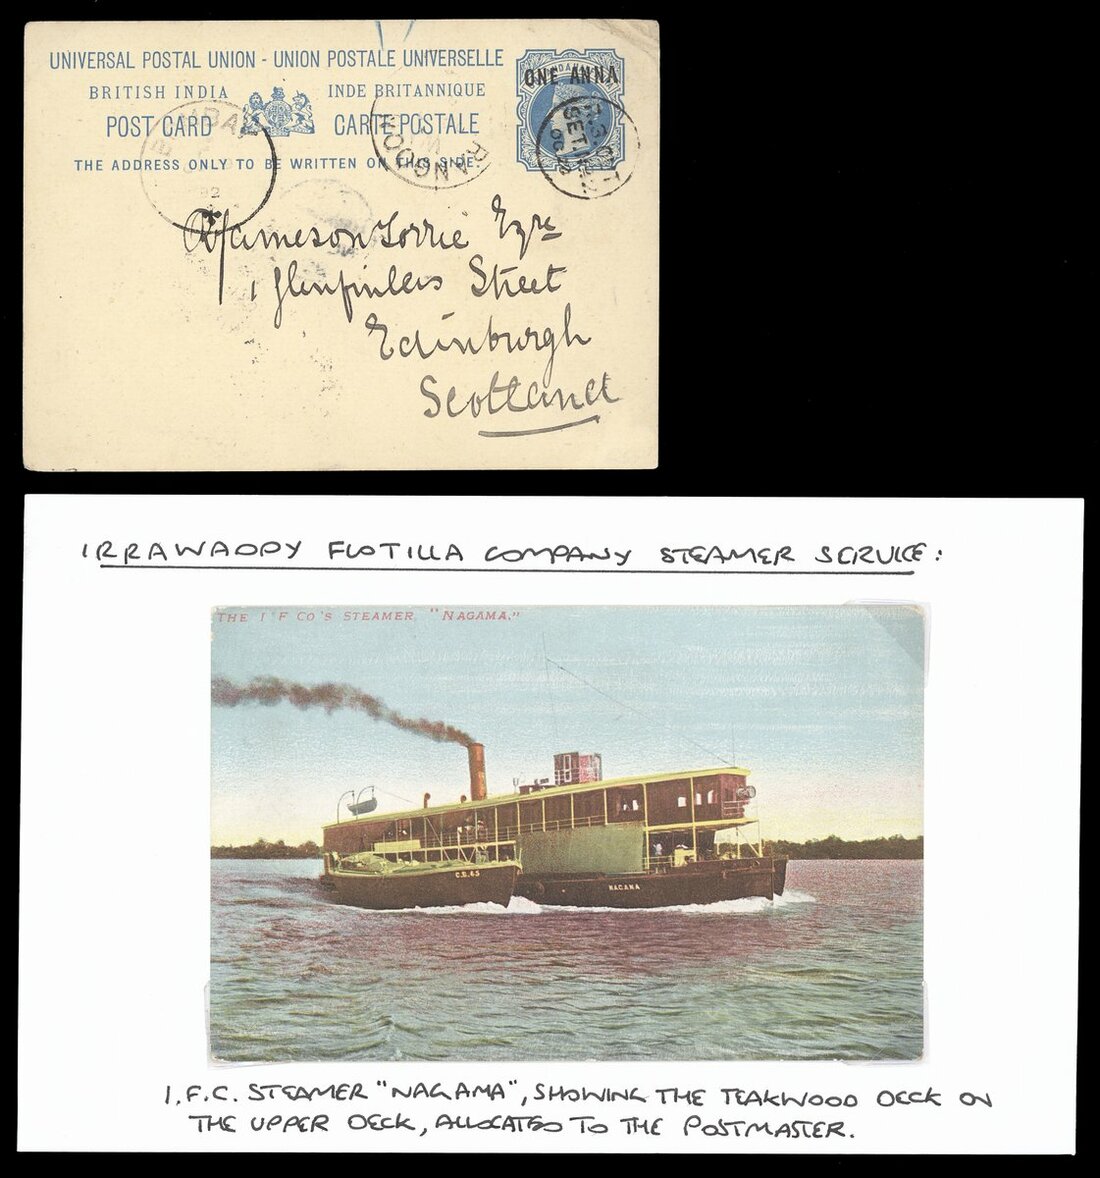 UNIVERSAL POSTAL UNION - UNION POSTALE UNIVERSELLE
BRITISH INDIA INDE BRITANNIQUE
POST CARD CARTE POSTALE
THE ADDRESS ONLY TO BE WRITTEN ON THIS SIDE.
ONE ANNA
RANGOON
SET
OC 22
92
Jameson Torrie Eqre
1 Glenfinlas Street
Edinburgh
Scotland
IRRAWADDY FLOTILLA COMPANY STEAMER SERVICE:
THE I F CO'S STEAMER "NAGAMA."
C.B. 45
NAGAMA
I.F.C. STEAMER "NAGAMA", SHOWING THE TEAKWOOD DECK ON
THE UPPER DECK, ALLOCATED TO THE POSTMASTER.